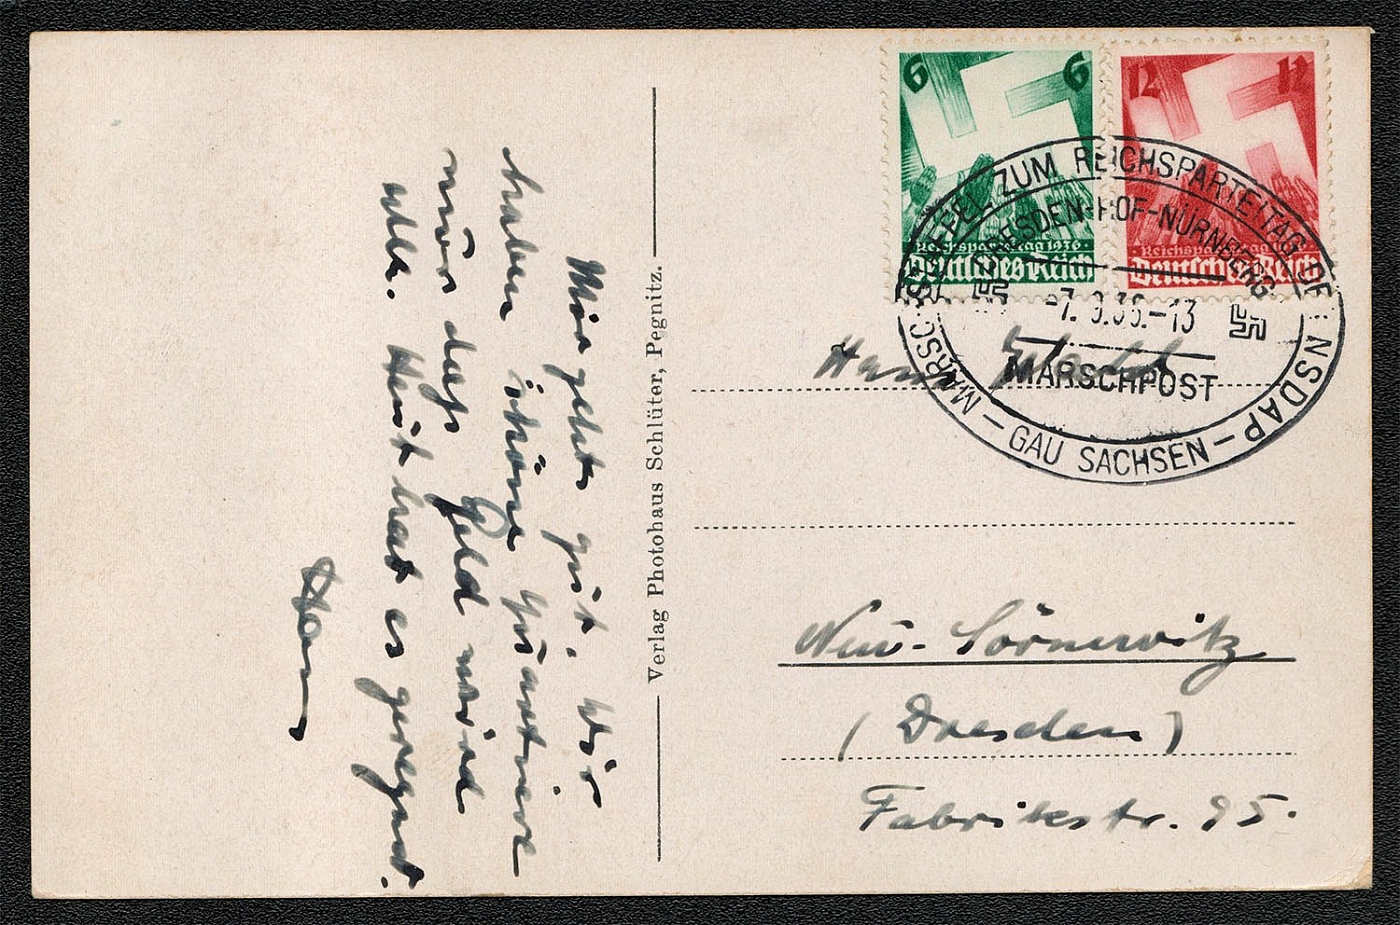 Mir geht's gut. Wir
haben schöne Quartiere
nur dass Geld wird
alle. Heut hat es geregnet.
Hans
Verlag Photohaus Schlüter, Pegnitz.
6 6
Reichsparteitag 1936
Deutsches Reich
12 12
Reichsparteitag
Deutsches Reich
MARSCHSTAFFEL ZUM REICHSPARTEITAG DER NSDAP –
DRESDEN-HOF-NÜRNBERG
-7.9.36.-13
MARSCHPOST
– GAU SACHSEN –
Hans
Neu-Sörnewitz
(Dresden)
Fabrikstr. 95.